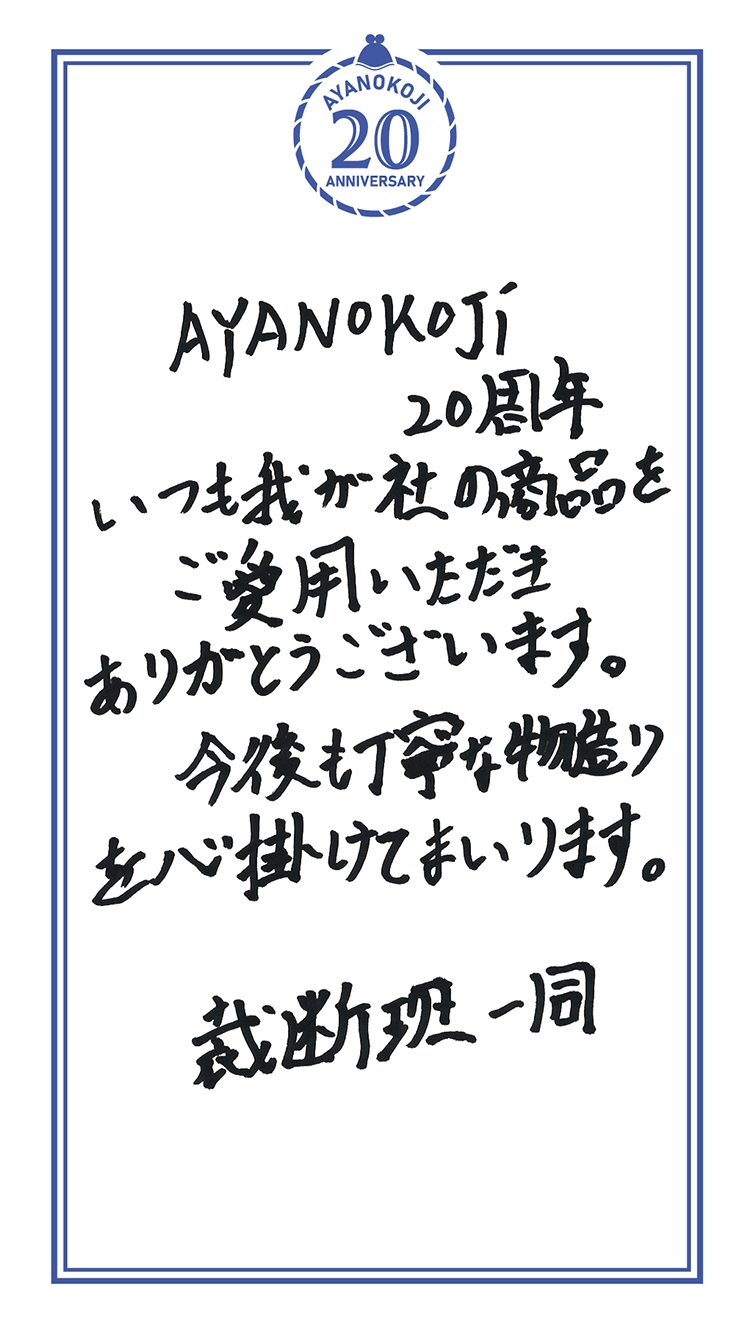 AYANOKOJI
20
ANNIVERSARY
AYANOKOJi
20周年
いつも我が社の商品を
ご愛用いただき
ありがとうございます。
今後も丁寧な物造り
を心掛けてまいります。
裁断班一同